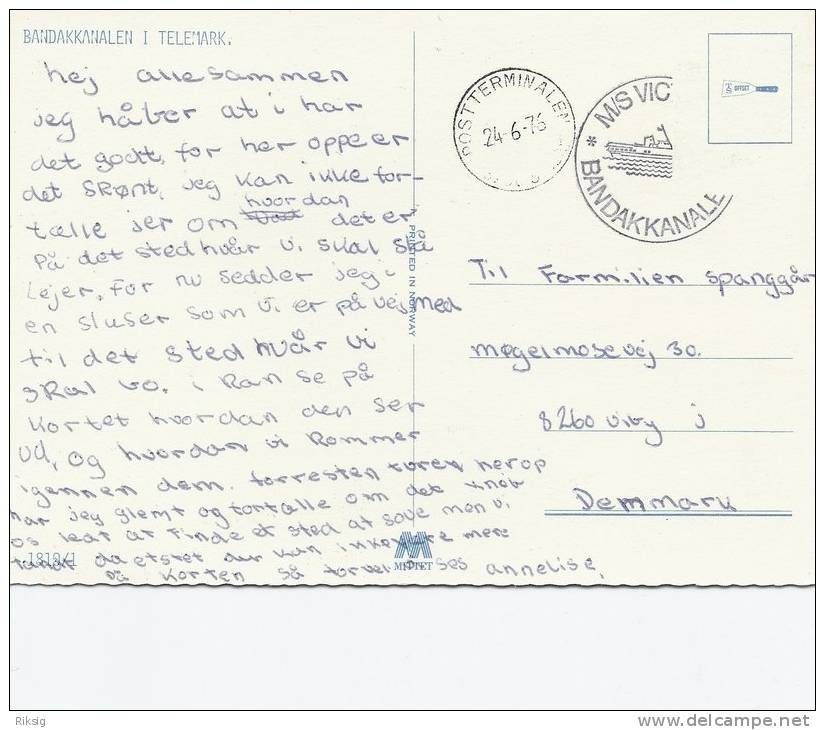 BANDAKKANALEN I TELEMARK.
hej allesammen
jeg håber at i har
det godt, for her oppe er
det skønt, jeg kan ikke for-
hvordan
tælle jer om det er
på det sted hvår vi skal slå
Lejer, for nu sedder jeg i
en sluser som vi er på vej med
til det sted hvår vi
skal bo. i kan se på
kortet hvordan den ser
ud, og hvordan vi kommer
igennen dem. forresten turen herop
har jeg glemt og fortælle om det
os leat at finde et sted at sove men vi
fandt da etstet der kan ikke mere
på korten så ses annelise.
1819/1
MITTET
PRINTED IN NORWAY
POSTTERMINALEN
24-6-76
M/S VIC
* BANDAKKANALE
OFFSET
Til Farmilien spanggår
møgelmosevej 30.
8260 viby j
Demmark
Riksig
http://www.delcampe.net